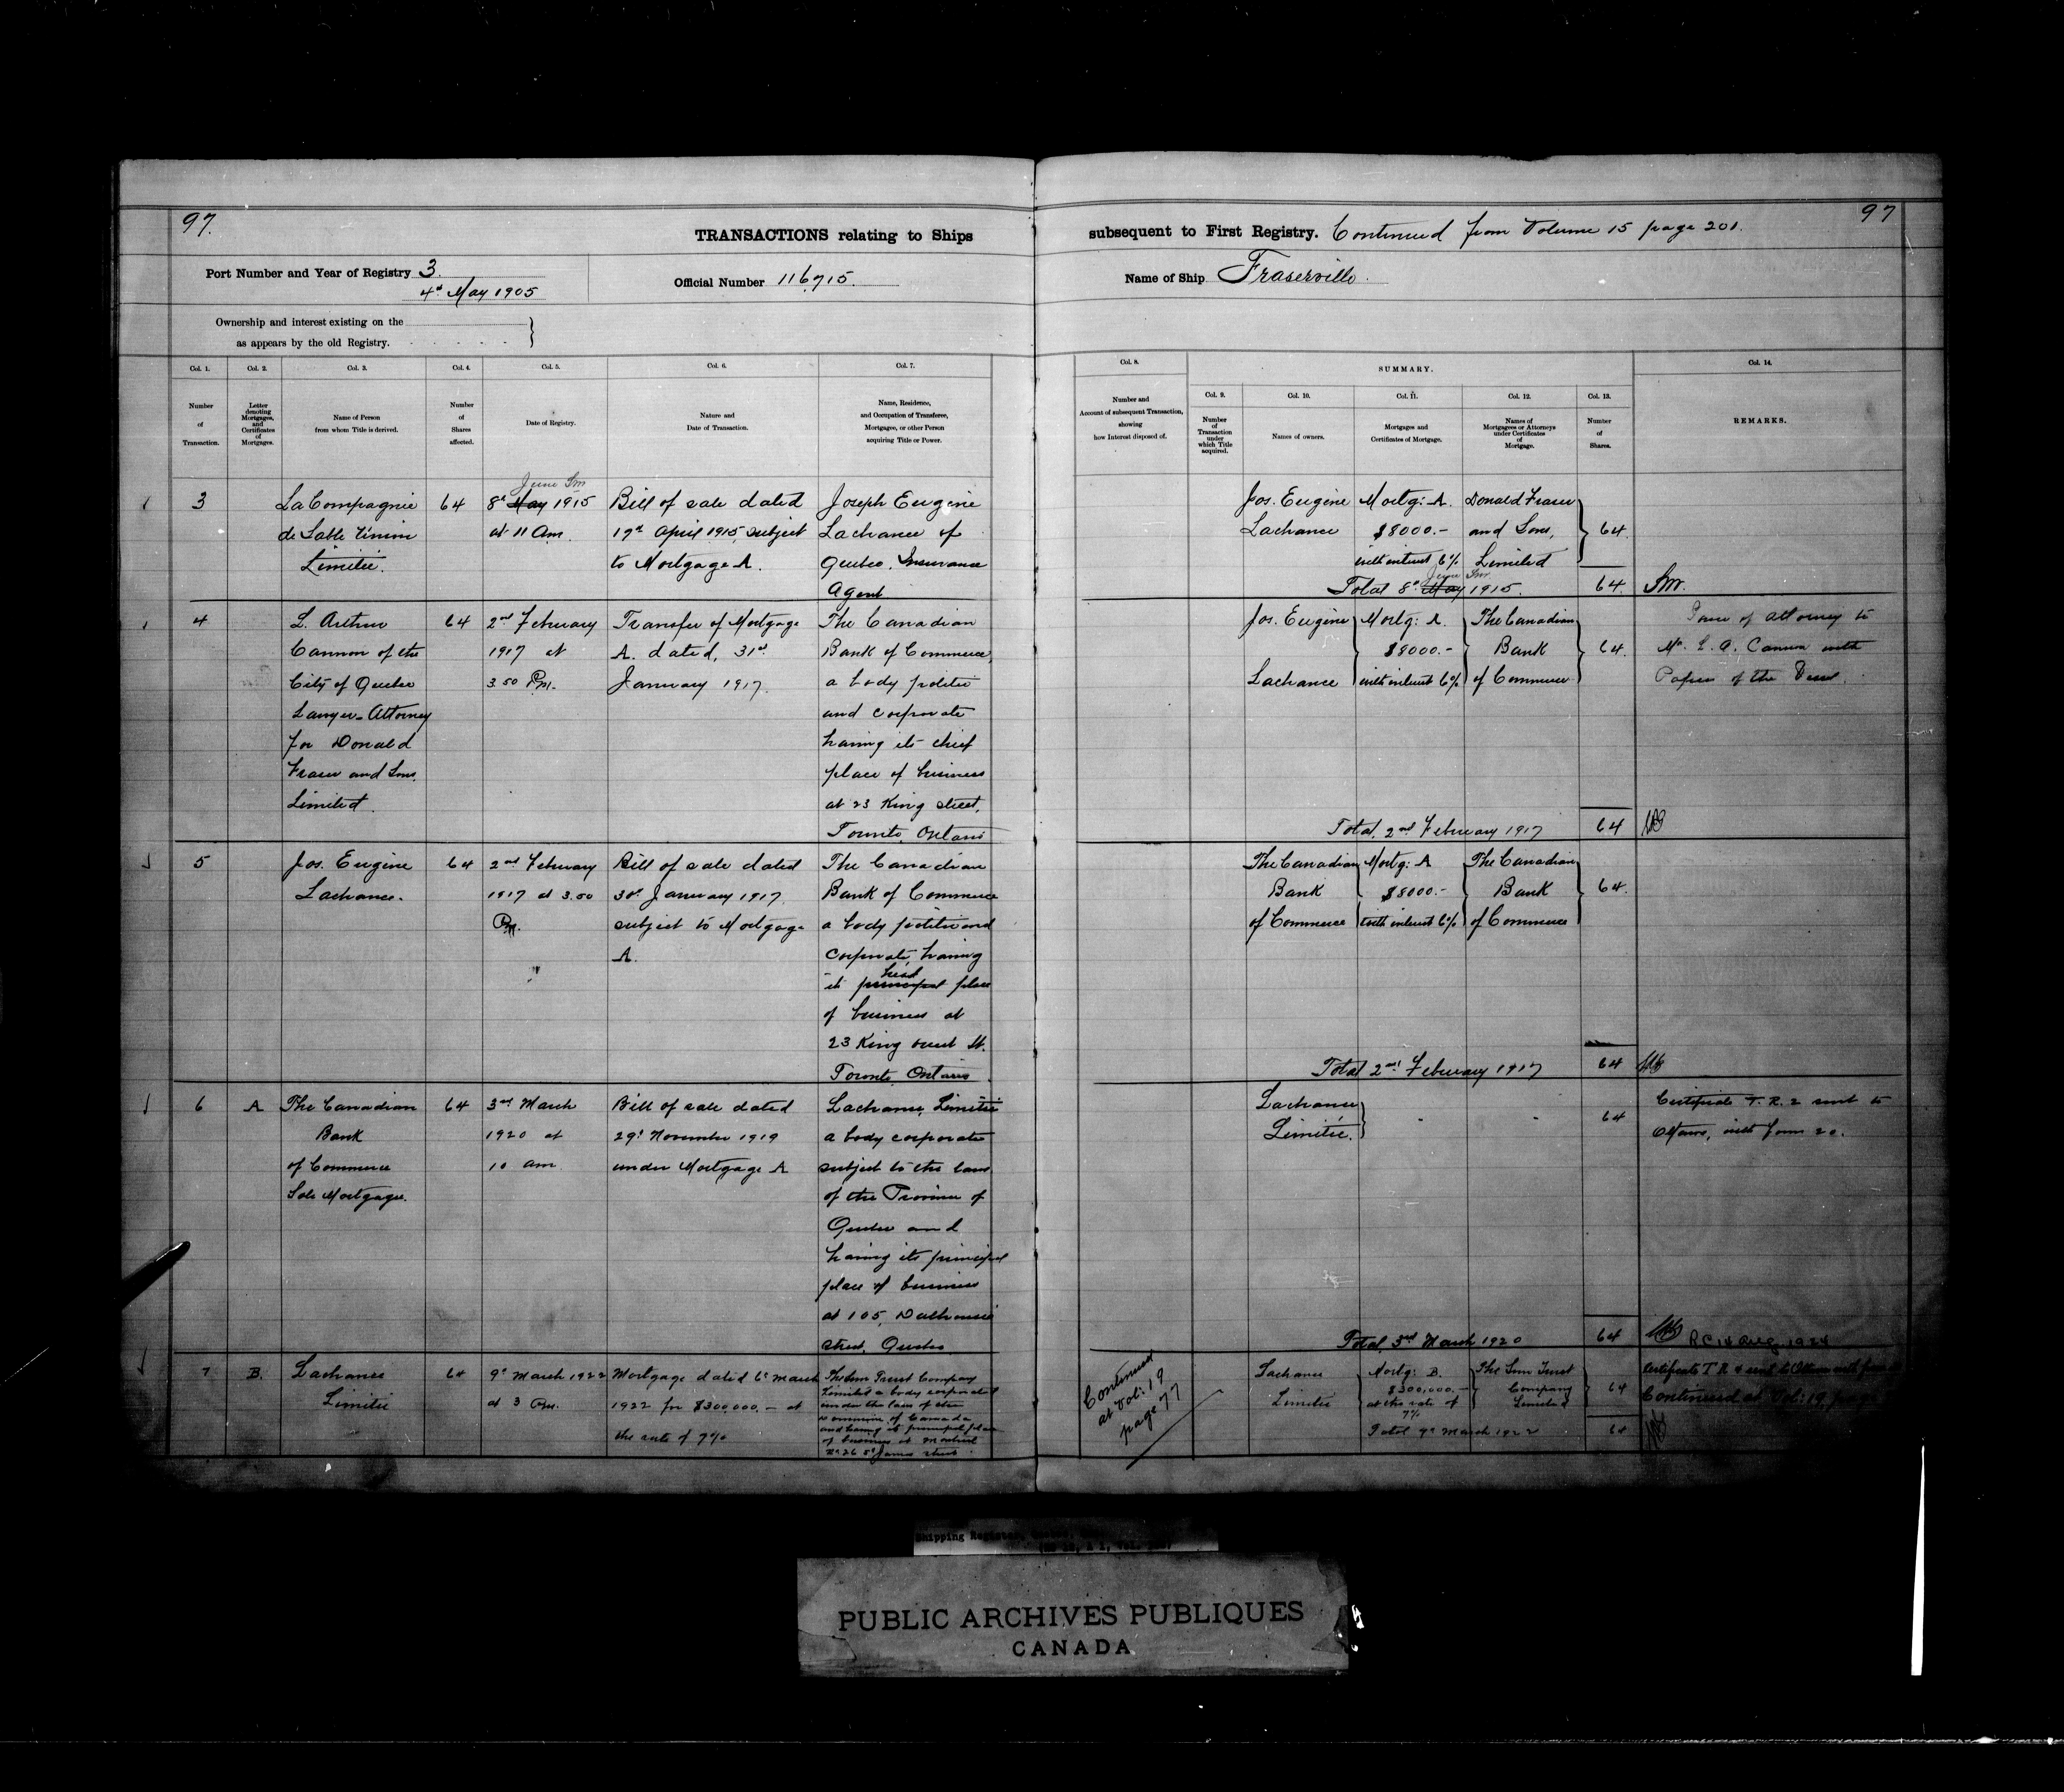 97.
TRANSACTIONS relating to Ships
Port Number and Year of Registry 3.
4th May 1905
Official Number 116,715.
Ownership and interest existing on the
as appears by the old Registry.
Col. 1.
Col. 2.
Col. 3.
Col. 4.
Col. 5.
Col. 6.
Col. 7.
Number
of
Transaction.
Letter
denoting
Mortgages,
and
Certificates
of
Mortgages.
Name of Person
from whom Title is derived.
Number
of
Shares
affected.
Date of Registry.
Nature and
Date of Transaction.
Name, Residence,
and Occupation of Transferee,
Mortgagee, or other Person
acquiring Title or Power.
3
La Compagnie
de Sable
Limitée.
64
June
8th May 1915
at 11 am.
Bill of sale dated
17th April 1915, subject
to Mortgage A.
Joseph Eugène
Lachance of
Quebec. Insurance
Agent
4
L. Arthur
Cannon of the
City of Quebec
Lawyer - Attorney
for Donald
Fraser and Sons
Limited.
64
2nd February
1917 at
3.50 Pm.
Transfer of Mortgage
A. dated, 31st
January 1917.
The Canadian
Bank of Commerce,
a body politic
and corporate
having its chief
place of business
at 23 King street,
Toronto, Ontario
5
Jos. Eugène
Lachance.
64
2nd February
1917 at 3.50
Pm.
Bill of sale dated
30th January 1917.
subject to Mortgage
A.
The Canadian
Bank of Commerce
a body politic and
corporate, having
head
its principal place
of business at
23 King St.
Toronto, Ontario
6
A
The Canadian
Bank
of Commerce
Sole Mortgagee.
64
3rd March
1920 at
10 am.
Bill of sale dated
29th November 1919
under Mortgage A
Lachance, Limitée
a body corporate
subject to the laws
of the Province of
Quebec and
having its principal
place of business
at 105, Dalhousie
street, Quebec
7
B.
Lachance
Limitée
64
9th March 1922
at 3 Pm.
Mortgage dated 6th March
1922 for $300,000.- at
the rate of 7%
The Sun Trust Company
Limited a body corporated
under the laws of the
Dominion of Canada
and having its principal place
of business at Montreal
No 26 St James street.
97
subsequent to First Registry. Continued from Volume 15 page 201.
Name of Ship Fraserville.
Col. 8.
Number and
Account of subsequent Transaction,
showing
how Interest disposed of.
SUMMARY.
Col. 9.
Col. 10.
Col. 11.
Col. 12.
Col. 13.
Col. 14.
Number
of
Transaction
under
which Title
acquired.
Names of owners.
Mortgages and
Certificates of Mortgage.
Names of
Mortgagees or Attorneys
under Certificates
of
Mortgage.
Number
of
Shares.
REMARKS.
Jos. Eugène
Lachance
Mortg: A.
$8000.-
with interest 6%
Donald Fraser
and Sons,
Limited
64.
June
Total 8th May 1915.
64.
Jos. Eugène
Lachance
Mortg: A.
$8000.-
with interest 6%
The Canadian
Bank
of Commerce
64.
Power of Attorney to
Mr. L. A. Cannon with
Papers of the Vessel.
Total, 2nd February 1917
64
The Canadian
Bank
of Commerce
Mortg: A
$8000.-
with interest 6%
The Canadian
Bank
of Commerce
64.
Total 2nd February 1917
64
Lachance
Limitée.
64
Certificate T. R. 2 sent to
Ottawa, with form 20.
Total, 3rd March 1920
64
R.C. 14 Aug. 1924
Continued
at Vol: 19
page 77
Lachance
Limitée
Mortg: B.
$300,000.-
at the rate of
7%
The Sun Trust
Company
Limited
64
Total 9th March 1922
64
Certificate T R 4 sent to Ottawa with form
Continued at Vol: 19,
Shipping Register
PUBLIC ARCHIVES PUBLIQUES
CANADA